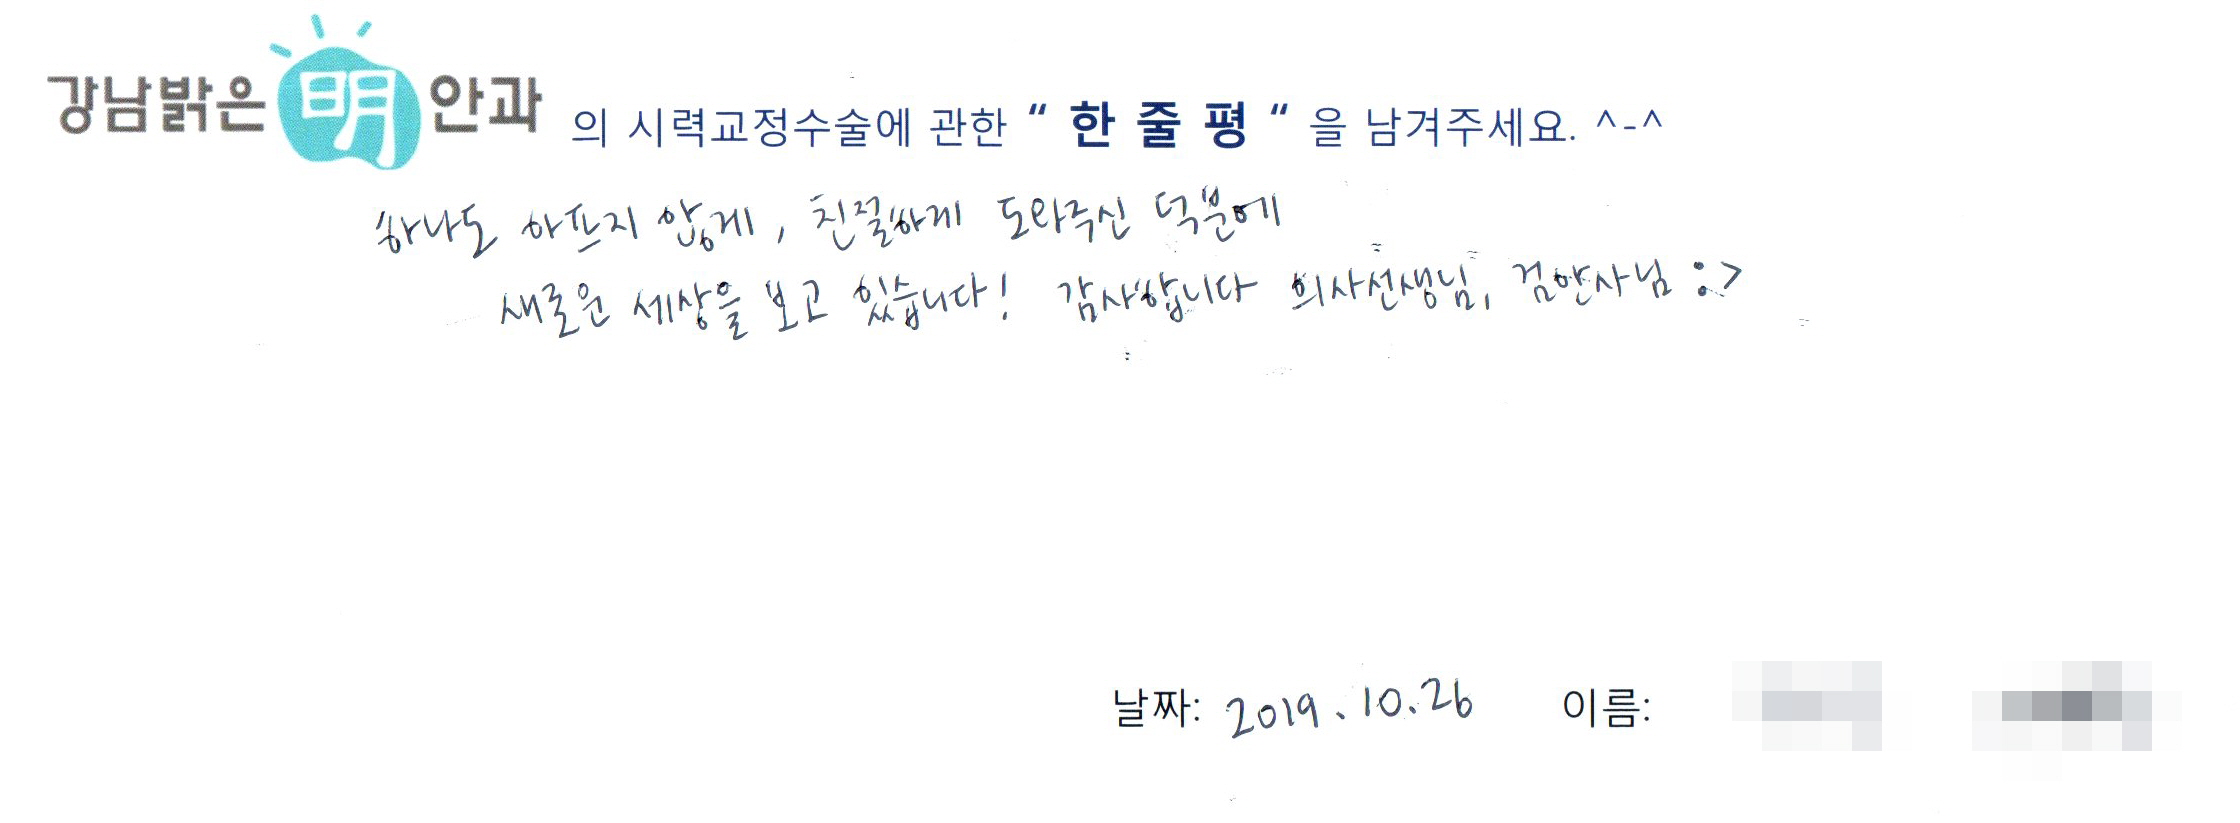 강남밝은明안과 의 시력교정수술에 관한 “ 한 줄 평 “ 을 남겨주세요. ^-^
하나도 아프지 않게, 친절하게 도와주신 덕분에
새로운 세상을 보고 있습니다! 감사합니다 의사선생님, 검안사님 :>
날짜: 2019.10.26 이름: